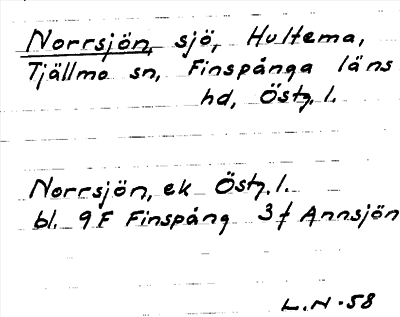 Norrsjön, sjö, Hultema,
Tjällmo sn, Finspånga läns
hd, Östg. l.
Norrsjön, ek Östg. l.
bl. 9F Finspång 3f Annsjön
L.N-58